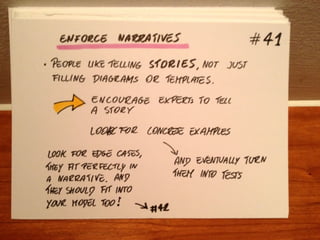 ENFORCE NARRATIVES
#41
• PEOPLE LIKE TELLING STORIES, NOT JUST
FILLING DIAGRAMS OR TEMPLATES.
ENCOURAGE EXPERTS TO TELL
A STORY
LOOK FOR CONCRETE EXAMPLES
AND EVENTUALLY TURN
THEM INTO TESTS
LOOK FOR EDGE CASES,
THEY FIT PERFECTLY IN
A NARRATIVE. AND
THEY SHOULD FIT INTO
YOUR MODEL TOO!
#42